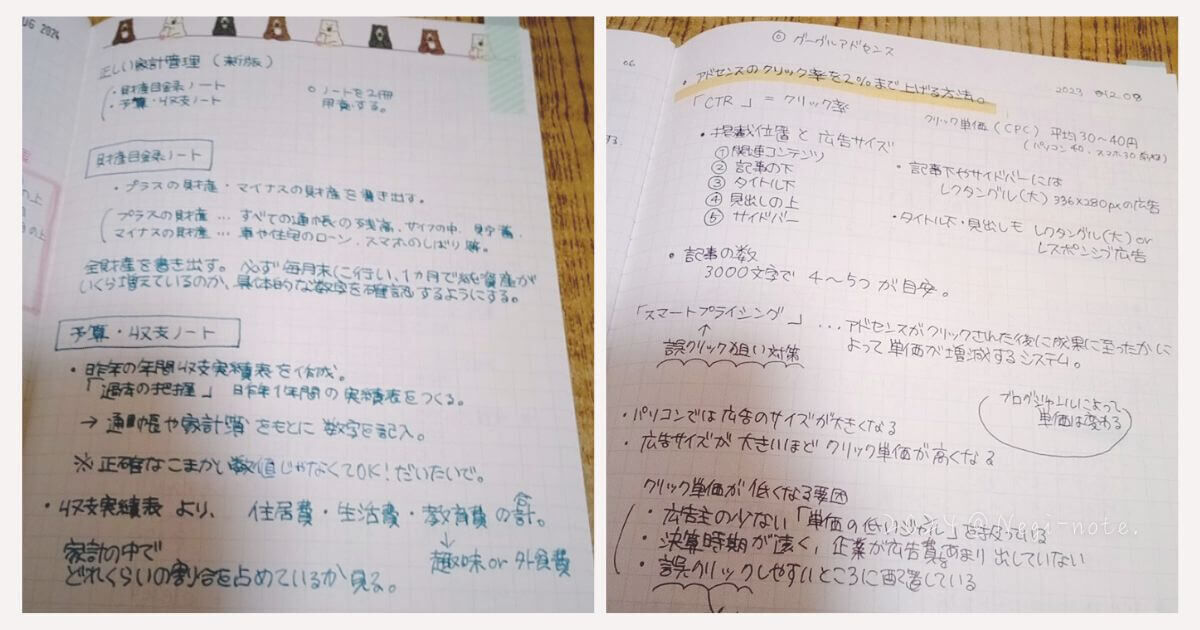 AUG 2024
正しい家計管理(新版)
・財産目録ノート
・予算・収支ノート
○ ノートを2冊
用意する。
財産目録ノート
・プラスの財産・マイナスの財産を書き出す。
プラスの財産 … すべての通帳の残高、サイフの中、貯蓄、
マイナスの財産 … 車や住宅のローン、スマホのしばり等。
全財産を書き出す。必ず毎月末に行い、1ヵ月で純資産が
いくら増えているのか、具体的な数字を確認するようにする。
予算・収支ノート
・昨年の年間収支実績表を作成。
「過去の把握」 昨年1年間の実績表をつくる。
→ 通帳や家計簿をもとに数字を記入。
※ 正確なこまかい数値じゃなくてOK! だいたいで。
・収支実績表 より、 住居費・生活費・教育費の合計。
↓
趣味 or 外食費
家計の中で
どれくらいの割合を占めているか見る。
06
◎ グーグルアドセンス
・アドセンスのクリック率を2%まで上げる方法。
2023
「CTR」= クリック率
クリック単価(CPC) 平均30〜40円
(パソコン40、スマホ30前後)
・掲載位置と広告サイズ
① 関連コンテンツ
② 記事の下
③ タイトル下
④ 見出しの上
⑤ サイドバー
・記事下やサイドバーには
レクタングル(大) 336×280pxの広告
・タイトル下・見出しも レクタングル(大) or
レスポンシブ広告
・記事の数
3000文字で 4〜5つが目安。
「スマートプライシング」 … アドセンスがクリックされた後に成果に至ったかに
よって単価が増減するシステム。
↑
誤クリック狙い対策
・パソコンでは広告のサイズが大きくなる
・広告サイズが大きいほどクリック単価が高くなる
ブログジャンルによって
単価は変わる
クリック単価が低くなる要因
・広告主の少ない「単価の低いジャンル」を扱っている
・決算時期が遠く、企業が広告費をあまり出していない
・誤クリックしやすいところに配置している
@Negi-note.